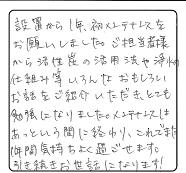 設置から1年、初メンテナンスを
お願いしました。ご担当者様
から活性炭の活用法や浄水の
仕組み等いろんなおもしろい
お話をご紹介いただきとても
勉強になりました。メンテナンスは
あっという間に終わり、これでまた
1年間気持ちよく過ごせます。
引き続きお世話になります!